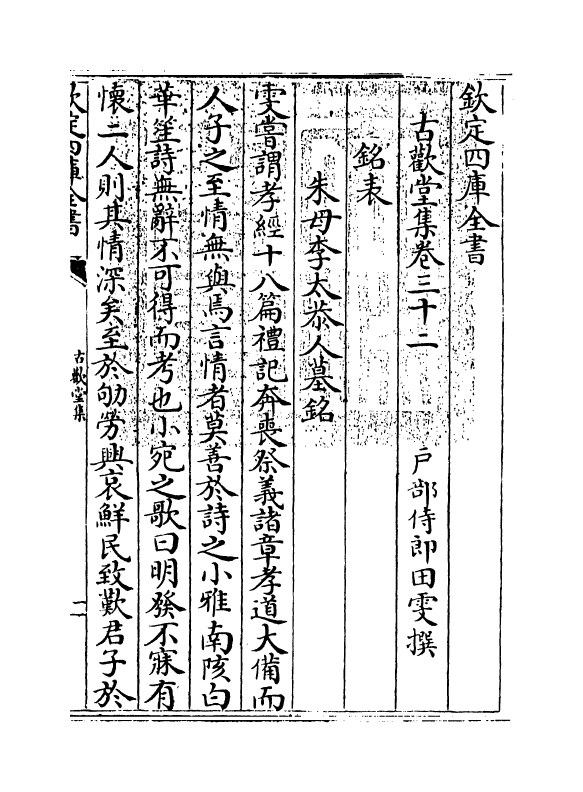 欽定四庫全書
古歡堂集卷三十二　戶部侍郎田雯撰
銘表
朱母李太恭人墓銘
雯嘗謂孝經十八篇禮記奔喪祭義諸章孝道大備而
人子之至情無與焉言情者莫善於詩之小雅南陔白
華笙詩無辭不可得而考也小宛之歌曰明發不寐有
懷二人則其情深矣至於劬勞興哀鮮民致歎君子於
欽定四庫全書
古歡堂集
一